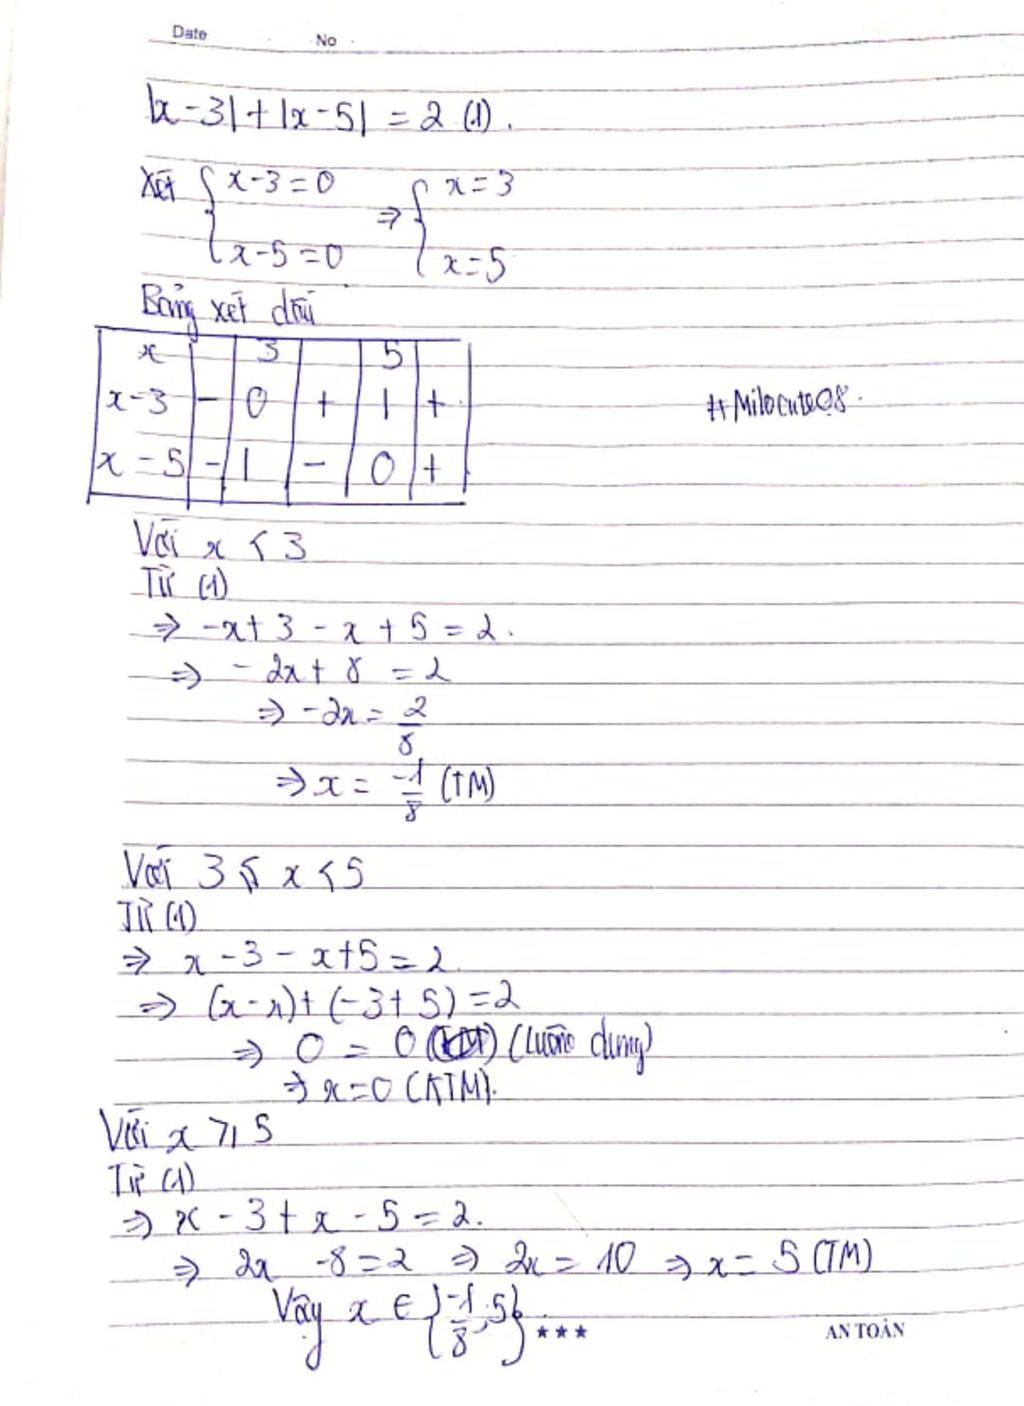 Date No
|x-3|+|x-5| = 2 (1).
Xét { x-3=0 ⇒ { x=3
x-5=0 x=5
Bảng xét dấu
x 3 5
x-3 - 0 + | +
x-5 - | - 0 +
#Milocute08.
Với x < 3
Từ (1)
⇒ -x+3-x+5=2.
⇒ -2x+8 = 2
⇒ -2x = 2/8
⇒ x = -1/8 (TM)
Với 3 ≤ x < 5
Từ (1)
⇒ x-3-x+5=2.
⇒ (x-x)+(-3+5)=2
⇒ 0 = 0 (Luôn đúng)
⇒ x=0 (KTM).
Với x ≥ 5
Từ (1)
⇒ x-3+x-5=2.
⇒ 2x -8=2 ⇒ 2x = 10 ⇒ x= 5 (TM)
Vậy x ∈ {-1/8; 5} ★★★
AN TOÀN